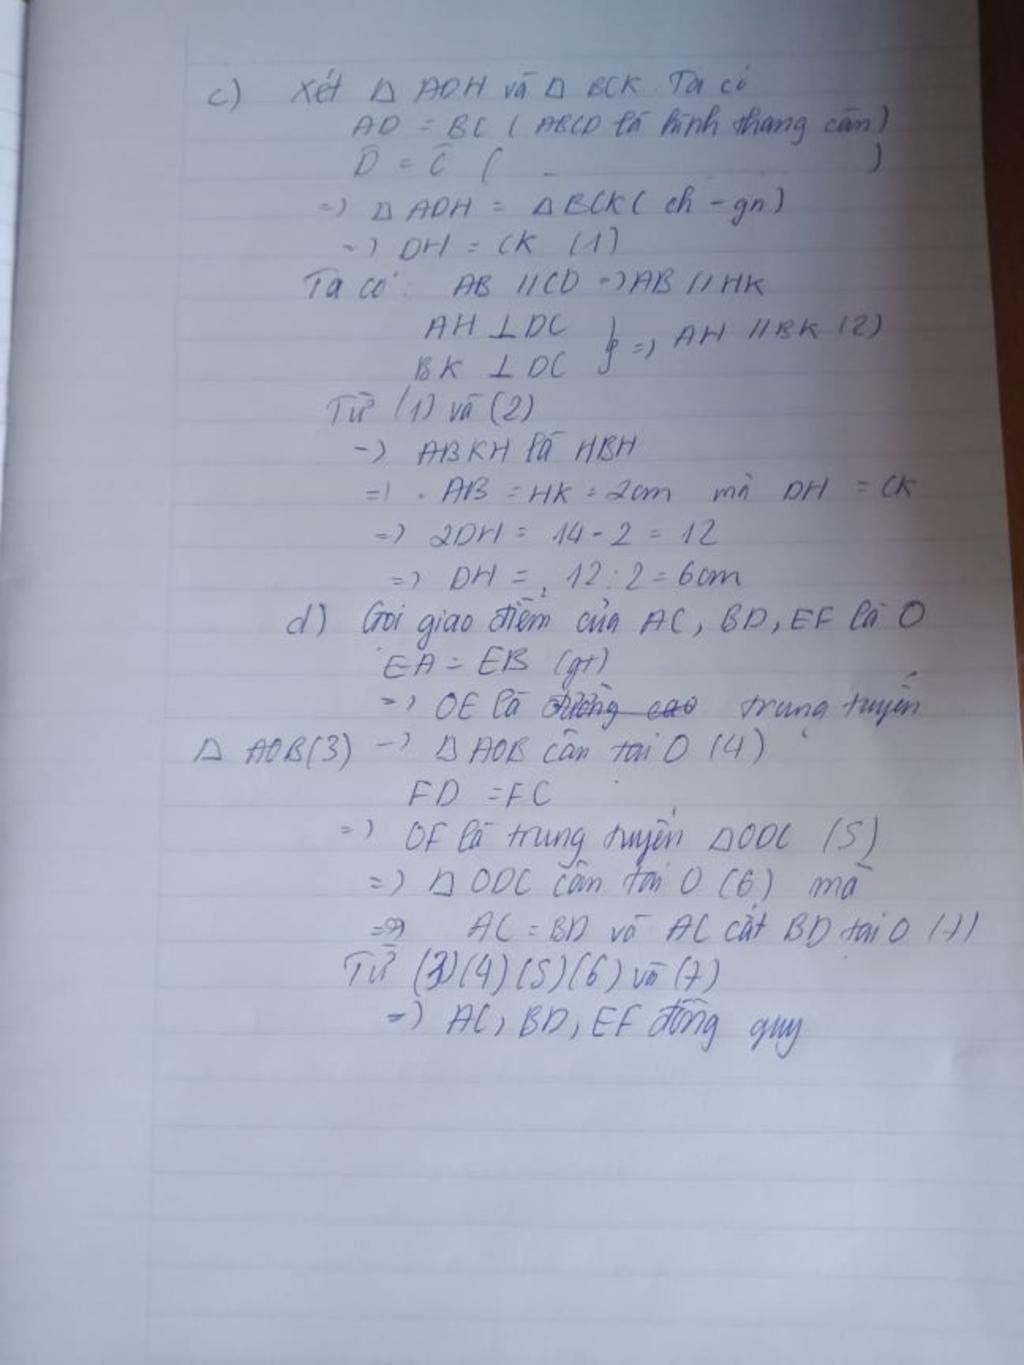 c) Xét △ ADH và △ BCK. Ta có
AD = BC ( ABCD là hình thang cân)
D̂ = Ĉ ( )
=> △ ADH = △ BCK ( ch - gn)
=> DH = CK (1)
Ta có: AB // CD => AB // HK
AH ⊥ DC
BK ⊥ DC } => AH // BK (2)
Từ (1) và (2)
=> ABKH là HBH
=> . AB = HK = 2cm mà DH = CK
=> 2DH = 14 - 2 = 12
=> DH = 12 : 2 = 6cm
d) Gọi giao điểm của AC, BD, EF là O
EA = EB (gt)
=> OE là đường cao trung tuyến
△ AOB (3) => △ AOB cân tại O (4)
FD = FC
=> OF là trung tuyến △ ODC (5)
=> △ ODC cân tại O (6) mà
=> AC = BD và AC cắt BD tại O (7)
Từ (3) (4) (5) (6) và (7)
=> AC, BD, EF đồng quy